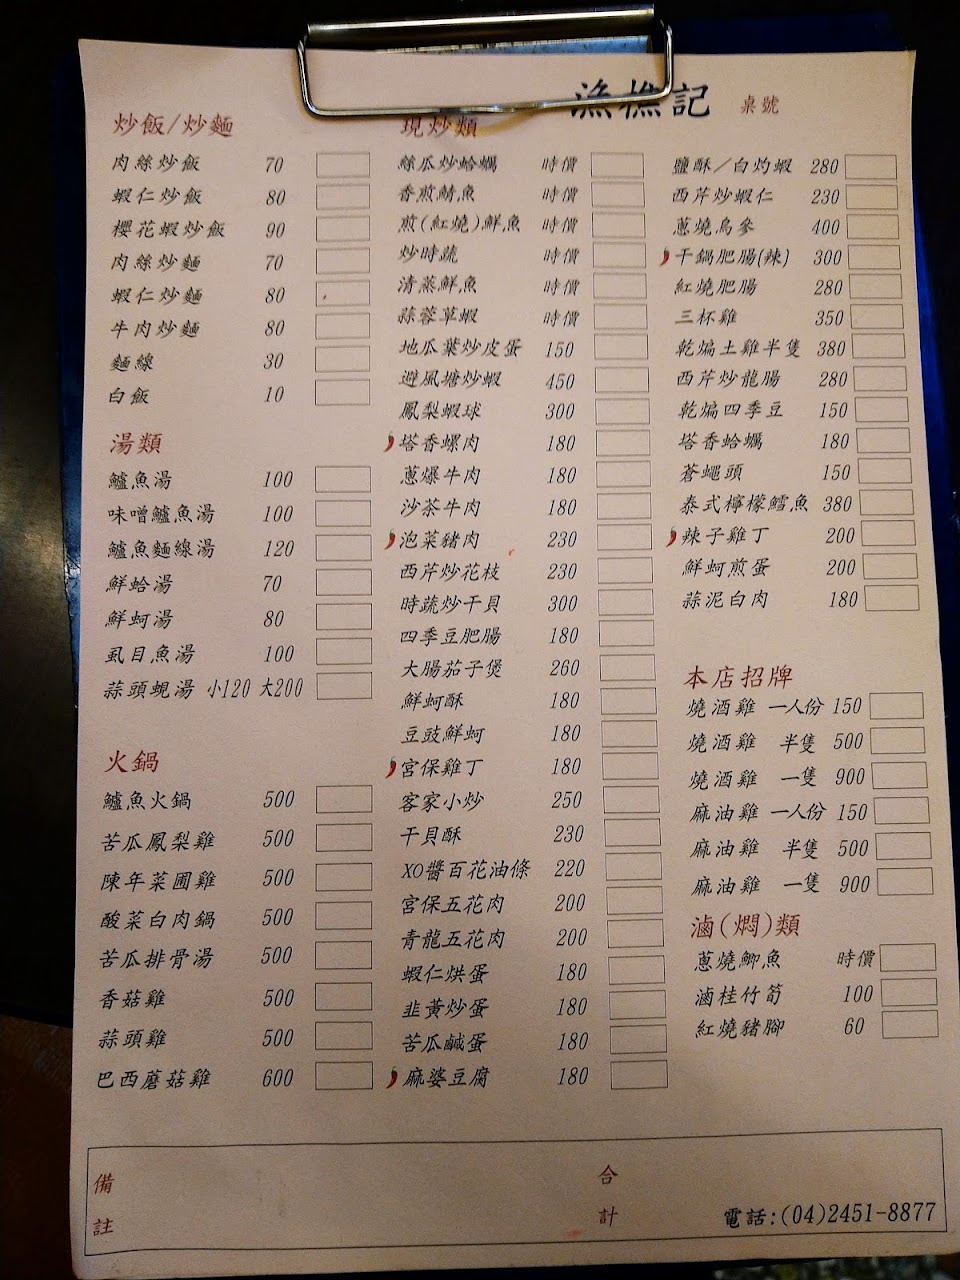 漁樵記 桌號
炒飯/炒麵
肉絲炒飯 70
蝦仁炒飯 80
櫻花蝦炒飯 90
肉絲炒麵 70
蝦仁炒麵 80
牛肉炒麵 80
麵線 30
白飯 10
湯類
鱸魚湯 100
味噌鱸魚湯 100
鱸魚麵線湯 120
鮮蛤湯 70
鮮蚵湯 80
虱目魚湯 100
蒜頭蜆湯 小120 大200
火鍋
鱸魚火鍋 500
苦瓜鳳梨雞 500
陳年菜圃雞 500
酸菜白肉鍋 500
苦瓜排骨湯 500
香菇雞 500
蒜頭雞 500
巴西蘑菇雞 600
現炒類
絲瓜炒蛤蠣 時價
香煎鯖魚 時價
煎(紅燒)鮮魚 時價
炒時蔬 時價
清蒸鮮魚 時價
蒜蓉草蝦 時價
地瓜葉炒皮蛋 150
避風塘炒蝦 450
鳳梨蝦球 300
塔香螺肉 180
蔥爆牛肉 180
沙茶牛肉 180
泡菜豬肉 230
西芹炒花枝 230
時蔬炒干貝 300
四季豆肥腸 180
大腸茄子煲 260
鮮蚵酥 180
豆豉鮮蚵 180
宮保雞丁 180
客家小炒 250
干貝酥 230
XO醬百花油條 220
宮保五花肉 200
青龍五花肉 200
蝦仁烘蛋 180
韭黃炒蛋 180
苦瓜鹹蛋 180
麻婆豆腐 180
鹽酥/白灼蝦 280
西芹炒蝦仁 230
蔥燒烏參 400
干鍋肥腸(辣) 300
紅燒肥腸 280
三杯雞 350
乾煸土雞半隻 380
西芹炒龍腸 280
乾煸四季豆 150
塔香蛤蠣 180
蒼蠅頭 150
泰式檸檬鱈魚 380
辣子雞丁 200
鮮蚵煎蛋 200
蒜泥白肉 180
本店招牌
燒酒雞 一人份 150
燒酒雞 半隻 500
燒酒雞 一隻 900
麻油雞 一人份 150
麻油雞 半隻 500
麻油雞 一隻 900
滷(燜)類
蔥燒鯽魚 時價
滷桂竹筍 100
紅燒豬腳 60
備註
合計
電話:(04)2451-8877